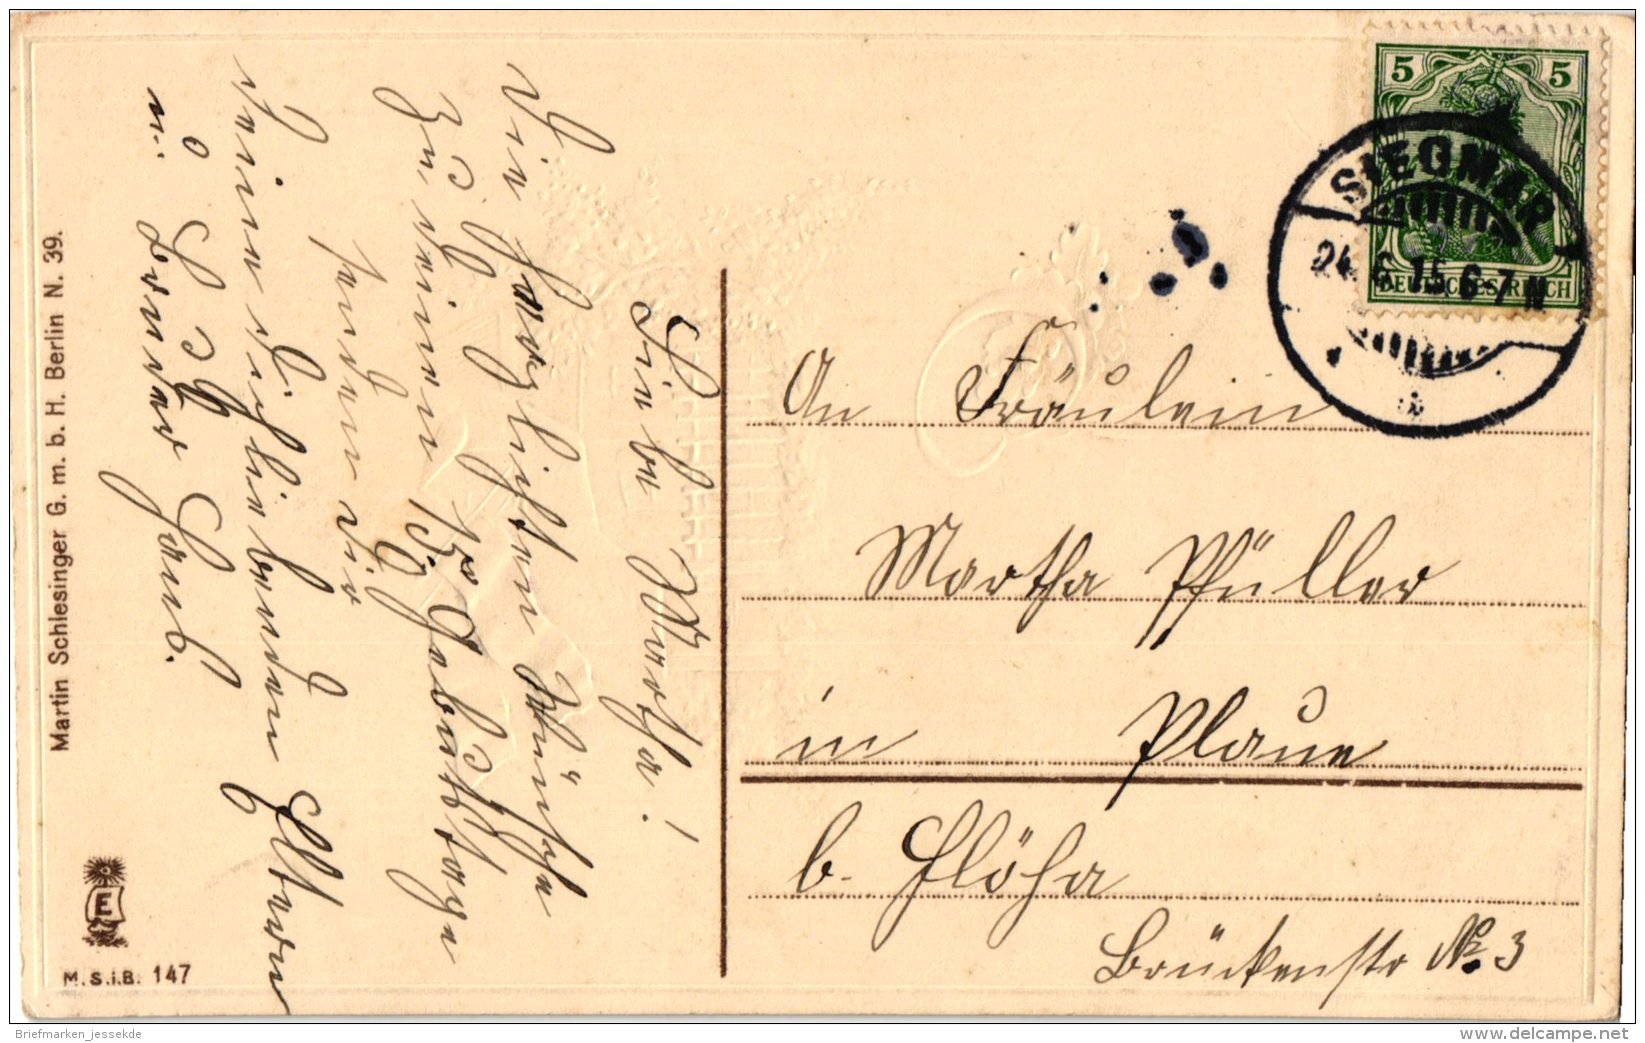 Liebe Martha!
Die herzlichsten Wünsche
zu deinem 15. Geburtstage
senden dir
deine dich liebenden Eltern
u. Bruder Hans.
5 5
DEUTSCHES REICH
SIEGMAR
24.6.15.6-7N
An Fräulein
Martha Pfüller
in Plaue
b. Flöha
Brückenstr No. 3
Martin Schlesinger G. m. b. H. Berlin N. 39.
E
M.S.i.B. 147
Briefmarken_jessekde
delcampe.net